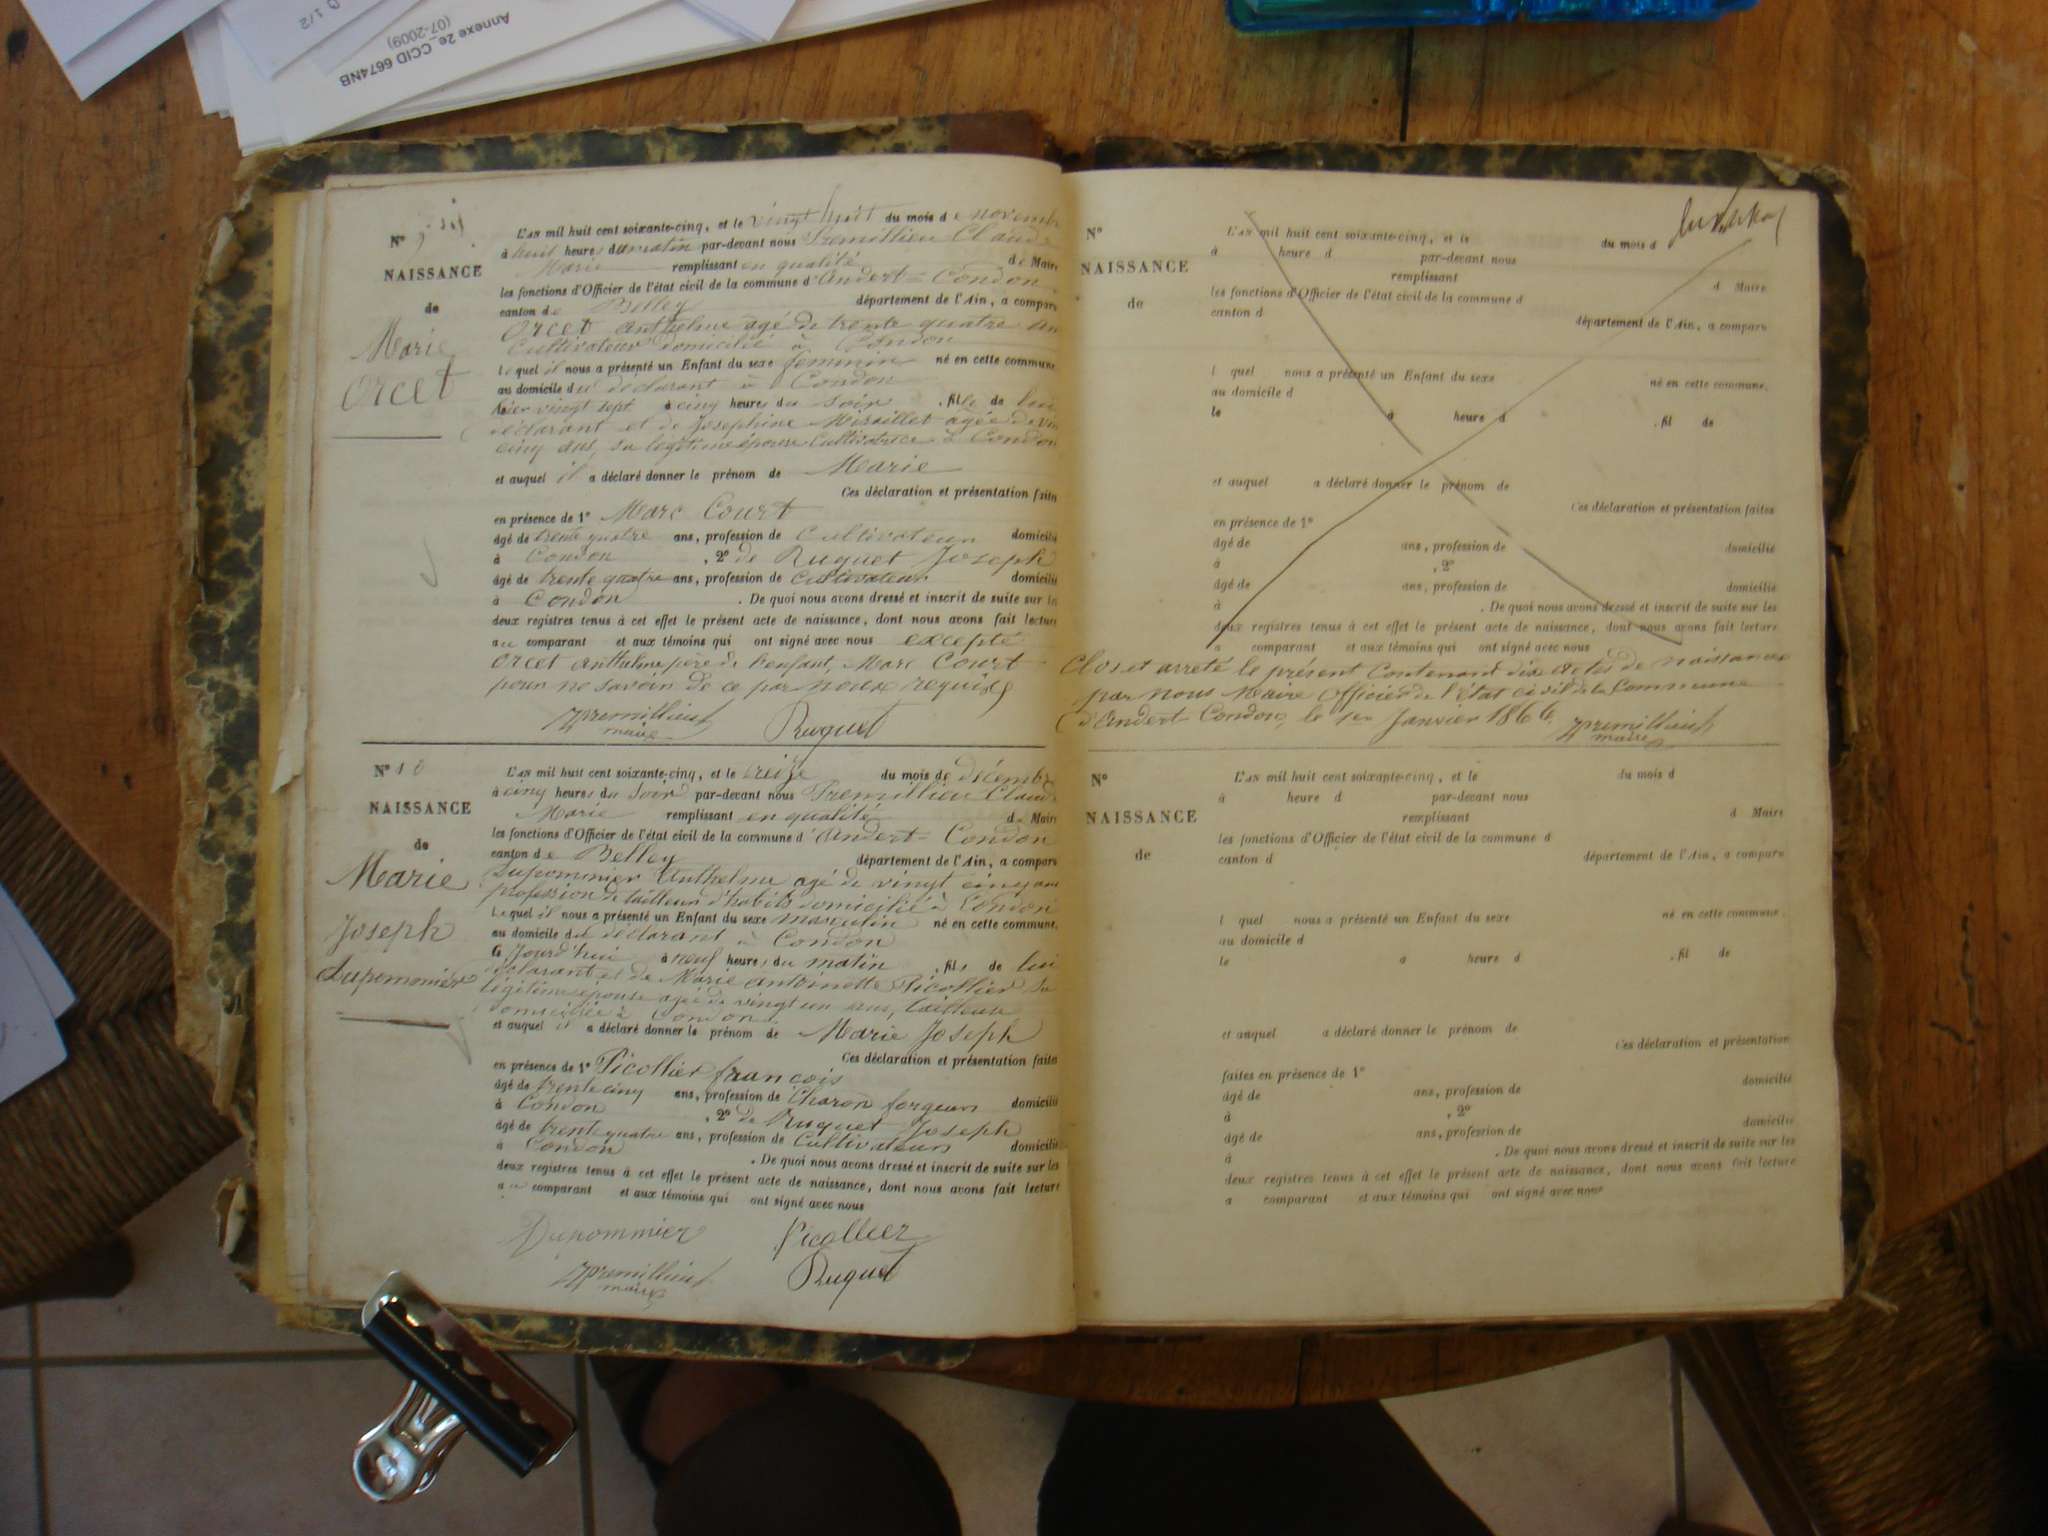 Q 1/2
Annexe 2e_CCID 6674NB
(07-2009)
N°
NAISSANCE
de
Marie
Orcet
L'AN mil huit cent soixante-cinq, et le vingt huit du mois de novembre
à huit heures du matin par-devant nous Premillieu Claude
Marie remplissant en qualité de Maire
les fonctions d'Officier de l'état civil de la commune d'Andert-Condon
canton de Belley département de l'Ain, a comparu
Orcet Anthelme agé de trente quatre ans
Cultivateur domicilié à Condon
lequel il nous a présenté un Enfant du sexe feminin né en cette commune,
au domicile du déclarant à Condon
hier vingt sept à cinq heures du soir, fille de lui
déclarant et de Josephine Miraillet agée de vingt
cinq ans, sa legitime épouse Cultivatrice à Condon
et auquel il a déclaré donner le prénom de Marie
Ces déclaration et présentation faites
en présence de 1° Marc Court
âgé de trente quatre ans, profession de Cultivateur domicilié
à Condon, 2° de Ruguet Joseph
âgé de trente quatre ans, profession de Cultivateur domicilié
à Condon. De quoi nous avons dressé et inscrit de suite sur les
deux registres tenus à cet effet le présent acte de naissance, dont nous avons fait lecture
au comparant et aux témoins qui ont signé avec nous excepté
Orcet Anthelme père de l'enfant, Marc Court
pour ne savoir de ce par nous requis
Premillieu
maire
Ruguet
N° 10
NAISSANCE
de
Marie
Joseph
Dupommier
L'AN mil huit cent soixante-cinq, et le treize du mois de décembre
à cinq heures du soir par-devant nous Premillieu Claude
Marie remplissant en qualité de Maire
les fonctions d'Officier de l'état civil de la commune d'Andert-Condon
canton de Belley département de l'Ain, a comparu
Dupommier Anthelme agé de vingt cinq ans
profession de tailleur d'habits domicilié à Condon
lequel il nous a présenté un Enfant du sexe masculin né en cette commune,
au domicile du déclarant à Condon
Jourd'hui à neuf heures du matin, fils de lui
déclarant et de Marie antoinette Picollier sa
légitime épouse agée de vingt un ans, tailleuse
domiciliée à Condon
et auquel il a déclaré donner le prénom de Marie Joseph
Ces déclaration et présentation faites
en présence de 1° Picollier françois
âgé de trente cinq ans, profession de Charon forgeur domicilié
à Condon, 2° de Ruguet Joseph
âgé de trente quatre ans, profession de Cultivateur domicilié
à Condon. De quoi nous avons dressé et inscrit de suite sur les
deux registres tenus à cet effet le présent acte de naissance, dont nous avons fait lecture
au comparant et aux témoins qui ont signé avec nous
Dupommier Picollier
Premillieu
maire
Ruguet
N°
NAISSANCE
de
L'AN mil huit cent soixante-cinq, et le du mois d
à heure d par-devant nous
remplissant d Maire
les fonctions d'Officier de l'état civil de la commune d
canton d département de l'Ain, a comparu
l quel nous a présenté un Enfant du sexe né en cette commune,
au domicile d
le à heure d, fil de
et auquel a déclaré donner le prénom de
Ces déclaration et présentation faites
en présence de 1°
âgé de ans, profession de domicilié
à, 2°
âgé de ans, profession de domicilié
à. De quoi nous avons dressé et inscrit de suite sur les
deux registres tenus à cet effet le présent acte de naissance, dont nous avons fait lecture
a comparant et aux témoins qui ont signé avec nous
Clos et arreté le présent Contenant dix actes de naissances
par nous Maire Officier de l'état civil de la Commune
d'Andert-Condon, le 1er Janvier 1866
Premillieu
maire
N°
NAISSANCE
de
L'AN mil huit cent soixante-cinq, et le du mois d
à heure d par-devant nous
remplissant d Maire
les fonctions d'Officier de l'état civil de la commune d
canton d département de l'Ain, a comparu
l quel nous a présenté un Enfant du sexe né en cette commune,
au domicile d
le à heure d, fil de
et auquel a déclaré donner le prénom de
Ces déclaration et présentation
faites en présence de 1° domicilié
âgé de ans, profession de
à, 2° domicilié
âgé de ans, profession de
à. De quoi nous avons dressé et inscrit de suite sur les
deux registres tenus à cet effet le présent acte de naissance, dont nous avons fait lecture
a comparant et aux témoins qui ont signé avec nous